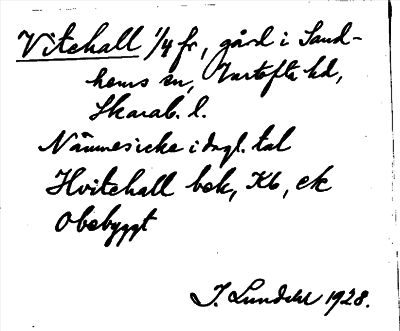 Vitehall 1/4 fr, gård i Sand-
hems sn, Vartofta hd,
Skarab. l.
Nämnes icke i dagl. tal
Hvitehall bok, Kb, ek
Obebyggt
J. Lundahl 1928.